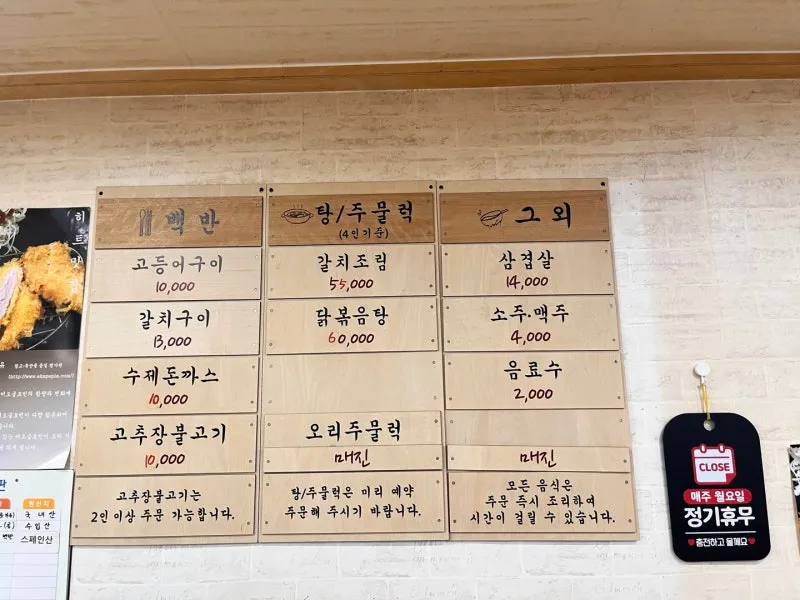 히트맛집
백반
고등어구이
10,000
갈치구이
13,000
수제돈까스
10,000
고추장불고기
10,000
고추장불고기는
2인 이상 주문 가능합니다.
탕/주물럭
(4인기준)
갈치조림
55,000
닭볶음탕
60,000
오리주물럭
매진
탕/주물럭은 미리 예약
주문해 주시기 바랍니다.
그 외
삼겹살
14,000
소주·맥주
4,000
음료수
2,000
매진
모든 음식은
주문 즉시 조리하여
시간이 걸릴 수 있습니다.
CLOSE
매주 월요일
정기휴무
충전하고 올께요
원산지
국내산
수입산
스페인산